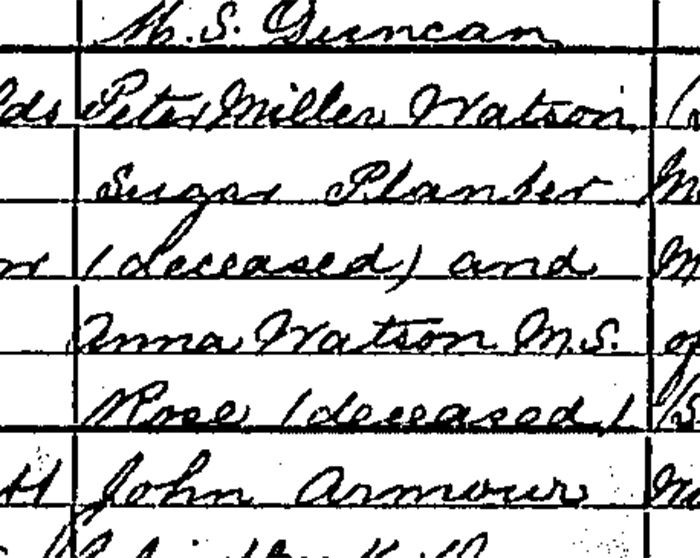 M.S. Duncan
Peter Miller Watson
Sugar Planter
(deceased) and
Anna Watson M.S.
Rose (deceased)
John Armour